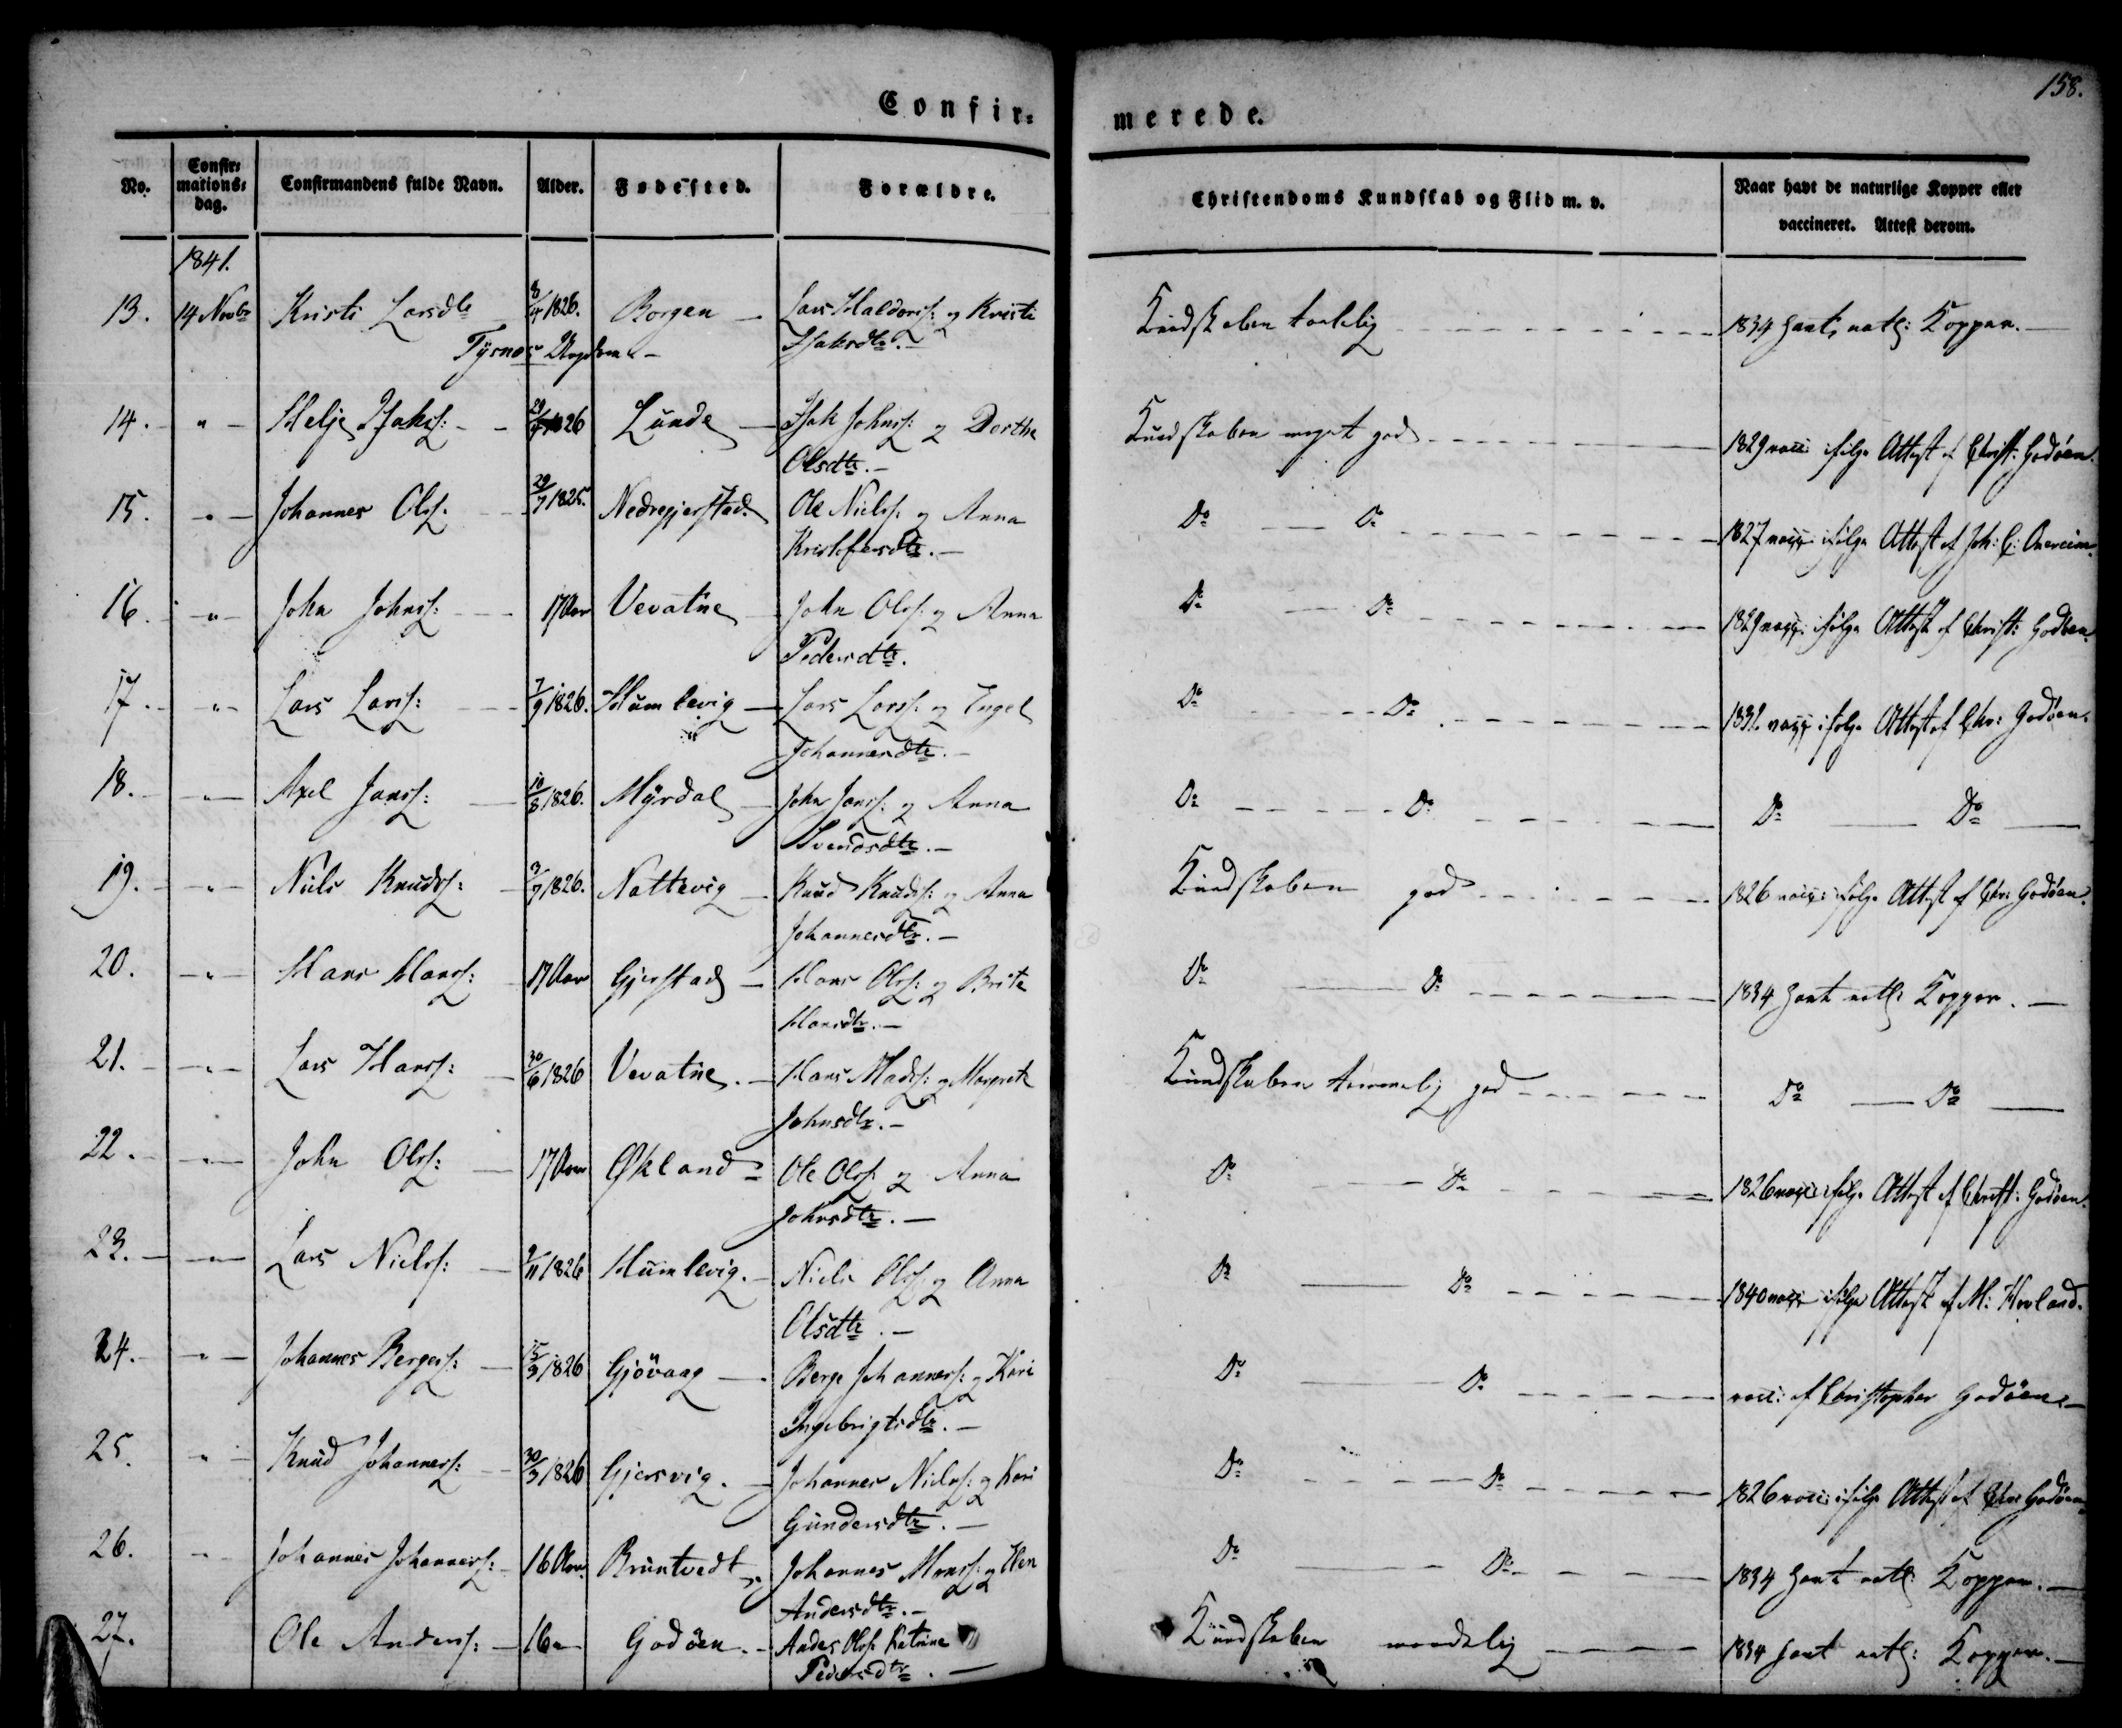 158.
Confir: merede.
No. Confir: mations: dag. Confirmandens fulde Navn. Alder. Fødested. Forældre. Christendoms Kundskab og Flid m. v. Naar havt de naturlige Kopper eller vaccineret. Attest derom.
1841.
13. 14 Novbr Kristi Larsdtr 8/4 1826. Borgen Lars Haldorss: og Kristi Kundskaben taalelig 1834 havt natl: Kopper.
Tysnes Ungdom Isaksdtr.
14. " Helje Isakss: 29/ 1826 Lunde Isak Johnss: og Dorthe Kundskaben meget god 1829 vacc: ifølge Attest af Christ: Godøen.
Olsdtr.
15. " Johannes Olss: 29/7 1825. Nedregjerstad Ole Nielss: og Anna Do Do 1827 vacc: ifølge Attest af Joh: C:
Kristofersdtr.
16. " John Johnss: 17 Aar Vevatne John Olss: og Anna Do Do 1829 vacc: ifølge Attest af Christ: Godøen.
Pedersdtr.
17. " Lars Larss: 7/9 1826. Humlevig Lars Larss: og Engel Do Do 1831. vacc: ifølge Attest af Chr: Godøen.
Johannesdtr.
18. " Axel Janss: 10/8 1826. Myrdal John Janss: og Anna Do Do Do Do
Svendsdtr.
19. " Niels Knudss: 3/7 1826. Nattevig Knud Knudss: og Anna Kundskaben god 1826 vacc: ifølge Attest af Chr: Godøen.
Johannesdtr.
20. " Hans Hanss: 17 Aar Gjerstad Hans Olss: og Brite Do Do 1834 havt natl: Kopper.
Hansdtr.
21. " Lars Hanss: 30/6 1826 Vevatne. Hans Madss: og Margrete Kundskaben temmelig god Do Do
Johnsdtr.
22. " John Olss: 17 Aar Økland Ole Olss: og Anna Do Do 1826 vacc: ifølge Attest af Christ: Godøen.
Johnsdtr.
23. " Lars Nielss: 9/11 1826 Humlevig. Niels Olss: og Anna Do Do 1840 vacc: ifølge Attest af M: Hovland.
Olsdtr.
24. " Johannes Bergess: 15/9 1826 Gjøvaag Berge Johanness: og Kari Do Do vacc: af Christopher Godøen.
Ingebrigtsdtr.
25. " Knud Johanness: 30/3 1826 Gjersvig. Johannes Nielss: og Kari Do Do 1826 vacc: ifølge Attest af Chr: Godøen
Gundersdtr.
26. " Johannes Johanness: 16 Aar. Bruntvedt Johannes Monss: og Do Do 1834 havt natl: Kopper.
Andersdtr.
27. Ole Anderss: 16 " Godøen. Anders Olss: Katrine Kundskaben maadelig 1834 havt natl: Kopper.
Pedersdtr.